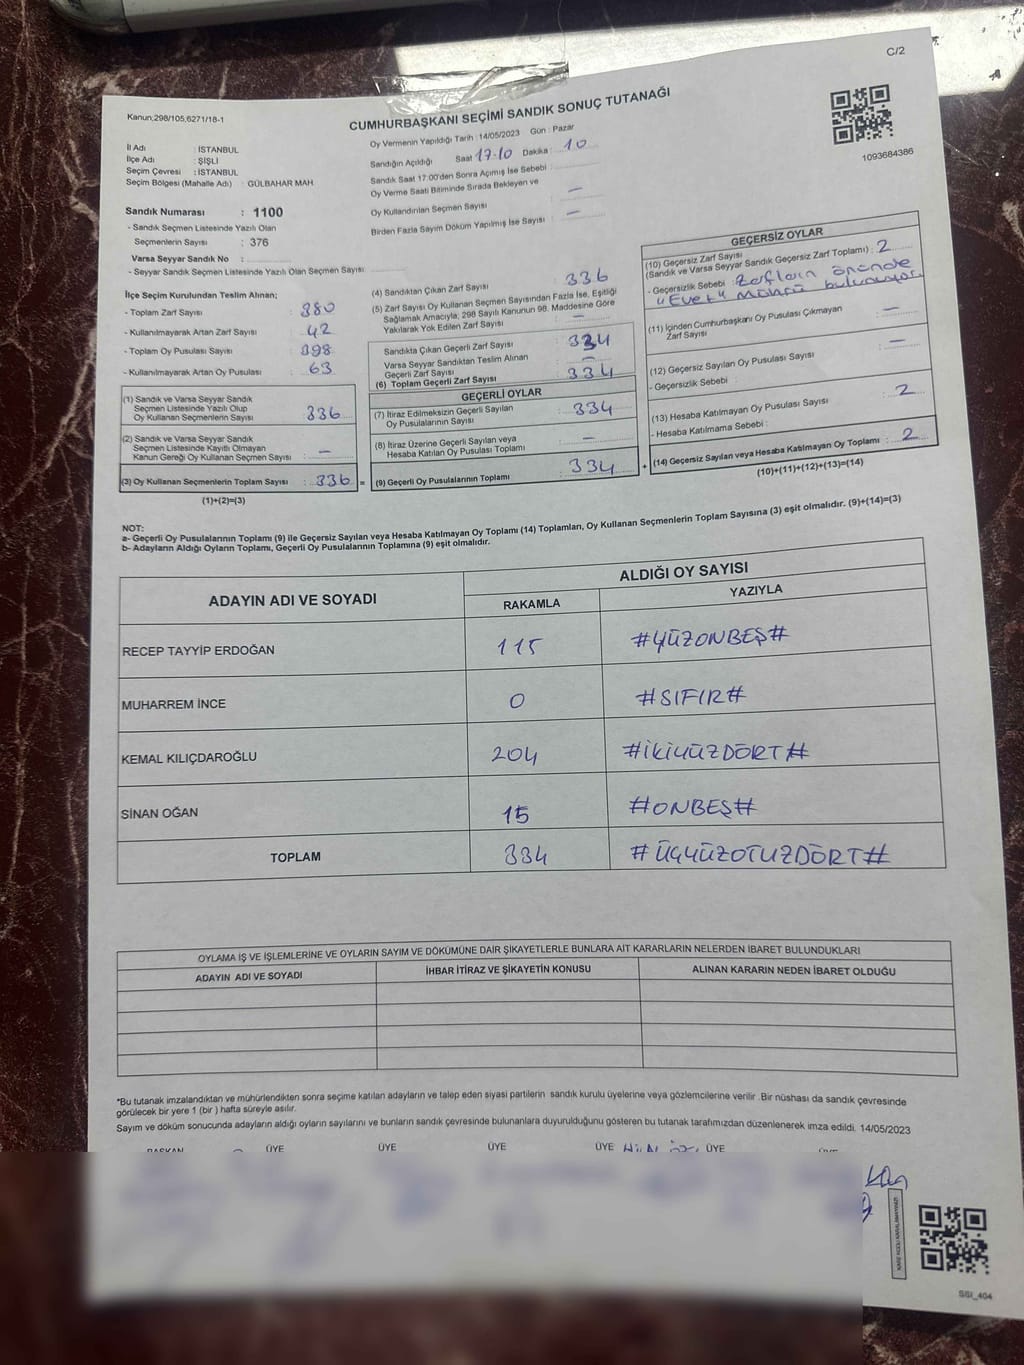 C/2
Kanun;298/105,6271/18-1
CUMHURBAŞKANI SEÇİMİ SANDIK SONUÇ TUTANAĞI
1093684386
İl Adı : İSTANBUL
İlçe Adı : ŞİŞLİ
Seçim Çevresi : İSTANBUL
Seçim Bölgesi (Mahalle Adı) : GÜLBAHAR MAH.
Oy Vermenin Yapıldığı Tarih : 14/05/2023 Gün : Pazar
Sandığın Açıldığı Saat 17:10 Dakika : 10
Sandık Saat 17:00'den Sonra Açılmış İse Sebebi :
Oy Verme Saati Bitiminde Sırada Bekleyen ve
Oy Kullandırılan Seçmen Sayısı : —
Birden Fazla Sayım Döküm Yapılmış İse Sayısı : —
Sandık Numarası : 1100
- Sandık Seçmen Listesinde Yazılı Olan
Seçmenlerin Sayısı : 376
Varsa Seyyar Sandık No :
- Seyyar Sandık Seçmen Listesinde Yazılı Olan Seçmen Sayısı :
İlçe Seçim Kurulundan Teslim Alınan;
- Toplam Zarf Sayısı : 380
- Kullanılmayarak Artan Zarf Sayısı : 42
- Toplam Oy Pusulası Sayısı : 398
- Kullanılmayarak Artan Oy Pusulası : 63
(1) Sandık ve Varsa Seyyar Sandık
Seçmen Listesinde Yazılı Olup
Oy Kullanan Seçmenlerin Sayısı : 336
(2) Sandık ve Varsa Seyyar Sandık
Seçmen Listesinde Kayıtlı Olmayan
Kanun Gereği Oy Kullanan Seçmen Sayısı : —
(3) Oy Kullanan Seçmenlerin Toplam Sayısı : 336 =
(1)+(2)=(3)
(4) Sandıktan Çıkan Zarf Sayısı : 336
(5) Zarf Sayısı Oy Kullanan Seçmen Sayısından Fazla İse, Eşitliği
Sağlamak Amacıyla, 298 Sayılı Kanunun 98. Maddesine Göre
Yakılarak Yok Edilen Zarf Sayısı : —
Sandıkta Çıkan Geçerli Zarf Sayısı : 334
Varsa Seyyar Sandıktan Teslim Alınan
Geçerli Zarf Sayısı : —
(6) Toplam Geçerli Zarf Sayısı : 334
GEÇERLİ OYLAR
(7) İtiraz Edilmeksizin Geçerli Sayılan
Oy Pusulalarının Sayısı : 334
(8) İtiraz Üzerine Geçerli Sayılan veya
Hesaba Katılan Oy Pusulası Toplamı : —
(9) Geçerli Oy Pusulalarının Toplamı : 334 +
GEÇERSİZ OYLAR
(10) Geçersiz Zarf Sayısı
(Sandık ve Varsa Seyyar Sandık Geçersiz Zarf Toplamı) : 2
- Geçersizlik Sebebi : Zarfların önünde
"Evet" Mührü bulunuyor.
(11) İçinden Cumhurbaşkanı Oy Pusulası Çıkmayan
Zarf Sayısı : —
(12) Geçersiz Sayılan Oy Pusulası Sayısı : —
- Geçersizlik Sebebi :
(13) Hesaba Katılmayan Oy Pusulası Sayısı : 2
- Hesaba Katılmama Sebebi :
(14) Geçersiz Sayılan veya Hesaba Katılmayan Oy Toplamı : 2
(10)+(11)+(12)+(13)=(14)
NOT:
a- Geçerli Oy Pusulalarının Toplamı (9) ile Geçersiz Sayılan veya Hesaba Katılmayan Oy Toplamı (14) Toplamları, Oy Kullanan Seçmenlerin Toplam Sayısına (3) eşit olmalıdır. (9)+(14)=(3)
b- Adayların Aldığı Oyların Toplamı, Geçerli Oy Pusulalarının Toplamına (9) eşit olmalıdır.
ADAYIN ADI VE SOYADI
ALDIĞI OY SAYISI
RAKAMLA YAZIYLA
RECEP TAYYİP ERDOĞAN 115 #YÜZONBEŞ#
MUHARREM İNCE 0 #SIFIR#
KEMAL KILIÇDAROĞLU 204 #İKİYÜZDÖRT#
SİNAN OĞAN 15 #ONBEŞ#
TOPLAM 334 #ÜÇYÜZOTUZDÖRT#
OYLAMA İŞ VE İŞLEMLERİNE VE OYLARIN SAYIM VE DÖKÜMÜNE DAİR ŞİKAYETLERLE BUNLARA AİT KARARLARIN NELERDEN İBARET BULUNDUKLARI
ADAYIN ADI VE SOYADI İHBAR İTİRAZ VE ŞİKAYETİN KONUSU ALINAN KARARIN NEDEN İBARET OLDUĞU
*Bu tutanak imzalandıktan ve mühürlendikten sonra seçime katılan adayların ve talep eden siyasi partilerin sandık kurulu üyelerine veya gözlemcilerine verilir .Bir nüshası da sandık çevresinde
görülecek bir yere 1 (bir ) hafta süreyle asılır.
Sayım ve döküm sonucunda adayların aldığı oyların sayılarını ve bunların sandık çevresinde bulunanlara duyurulduğunu gösteren bu tutanak tarafımızdan düzenlenerek imza edildi. 14/05/2023
BAŞKAN ÜYE ÜYE ÜYE ÜYE ÜYE
SSI_404